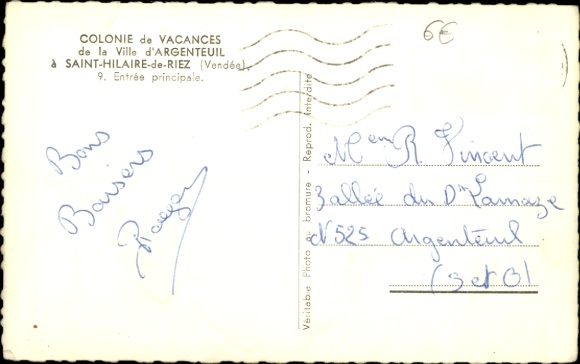 COLONIE de VACANCES
de la Ville d'ARGENTEUIL
à SAINT-HILAIRE-de-RIEZ (Vendée)
9. Entrée principale.
6€
Bons
Baisers
Roger
Véritable Photo au bromure - Reprod. Interdite
Mem R. Vincent
3 allée du Dr Lamaze
N 525 Argenteuil
(S et O)